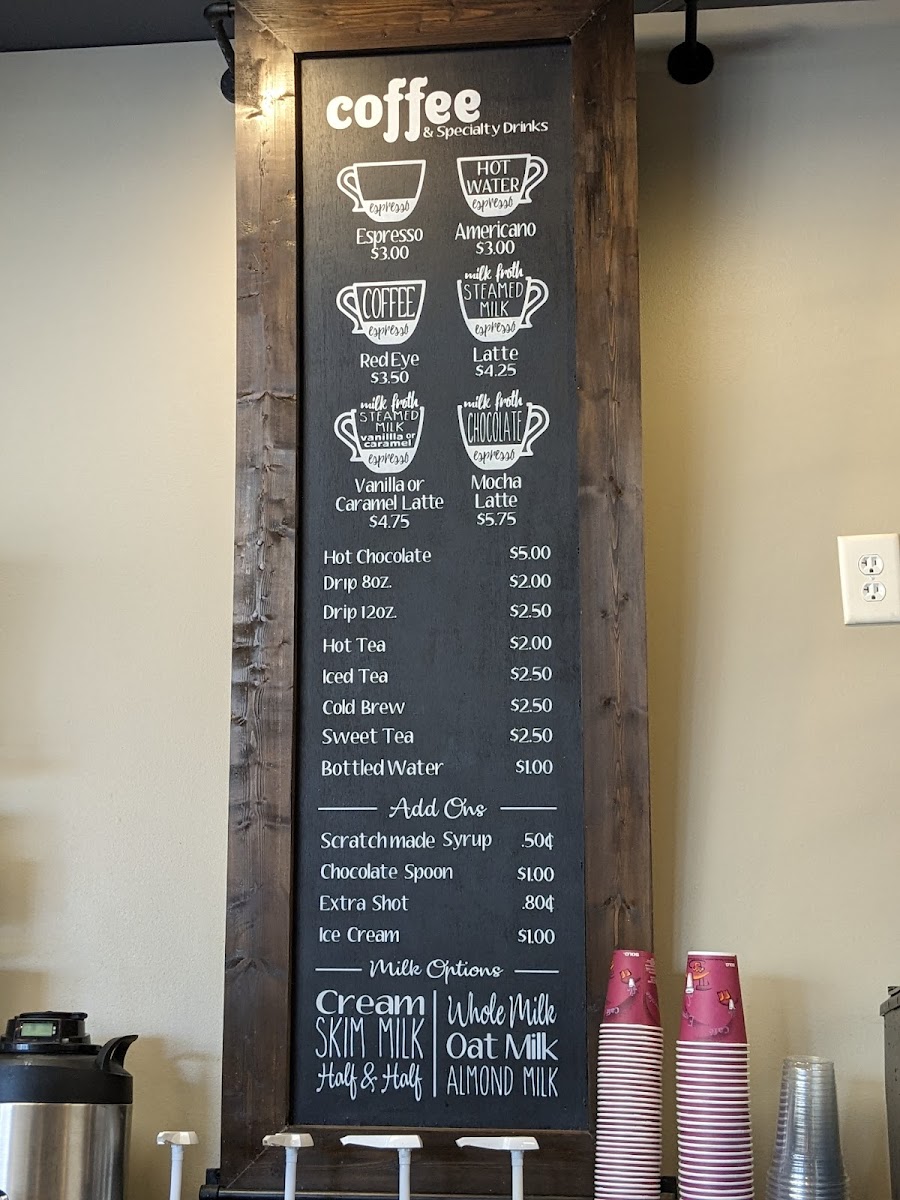 coffee
& Specialty Drinks
espresso
Espresso
$3.00
HOT
WATER
espresso
Americano
$3.00
COFFEE
espresso
Red Eye
$3.50
milk froth
STEAMED
MILK
espresso
Latte
$4.25
milk froth
STEAMED
MILK
vanillla or
caramel
espresso
Vanilla or
Caramel Latte
$4.75
milk froth
CHOCOLATE
espresso
Mocha
Latte
$5.75
Hot Chocolate $5.00
Drip 8oz. $2.00
Drip 12oz. $2.50
Hot Tea $2.00
Iced Tea $2.50
Cold Brew $2.50
Sweet Tea $2.50
Bottled Water $1.00
Add Ons
Scratchmade Syrup .50¢
Chocolate Spoon $1.00
Extra Shot .80¢
Ice Cream $1.00
Milk Options
Cream
SKIM MILK
Half & Half
Whole Milk
Oat Milk
ALMOND MILK